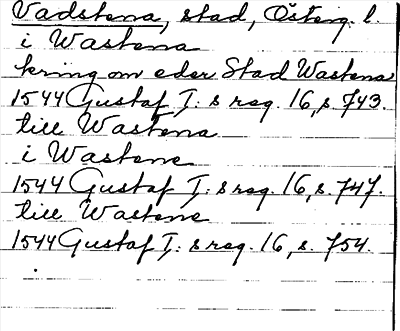 Vadstena, stad, Österg. l.
i Wastena
kring om eder Stad Wastena
1544 Gustaf I: s reg. 16, s. 743.
till Wastena
i Wastene
1544 Gustaf I: s reg. 16, s. 747.
till Wastene
1544 Gustaf I: s reg. 16, s. 754.